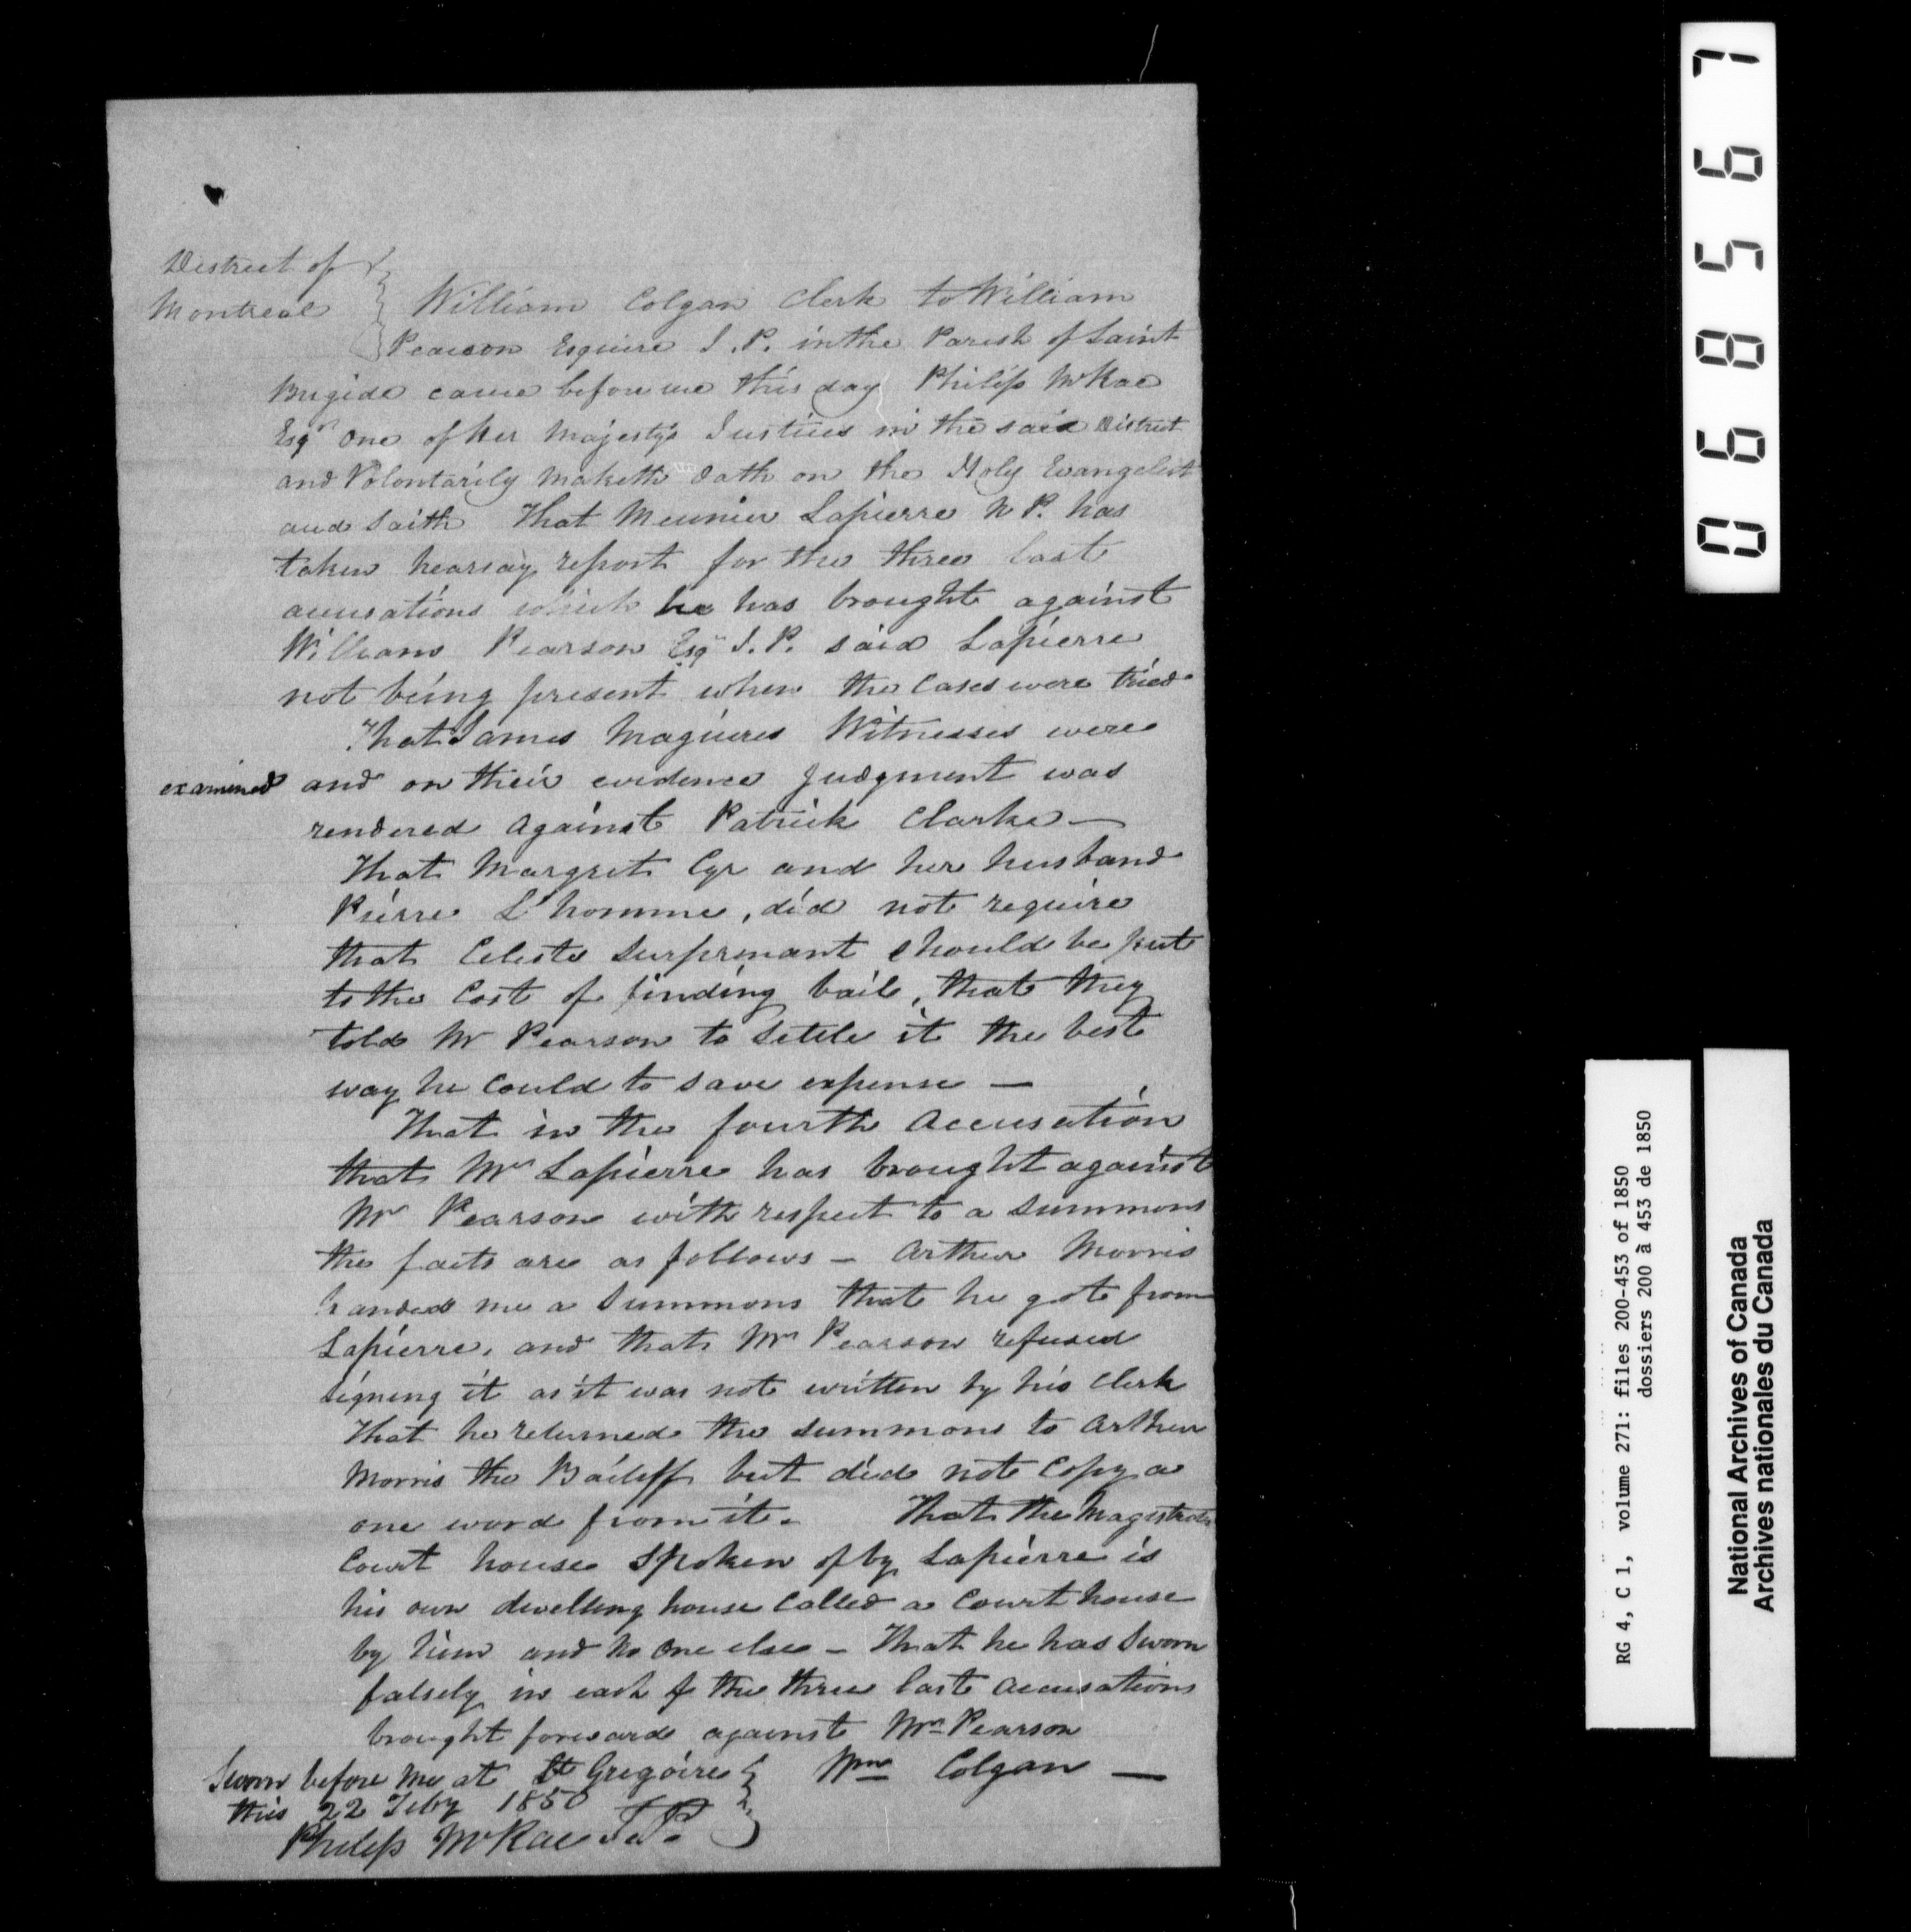 District of
Montreal
William Colgan Clerk to William
Pearson Esquire J.P. in the Parish of Saint
Brigide came before me this day Philip McRae
Esqr One of her Majestys Justices in the said District
and Volontarily Maketh Oath on the Holy Evangelist
and Saith That Meunier Lapierre N P. has
taken hearsay report for the three last
accusations which he has brought against
William Pearson Esqr J.P. said Lapierre
not being present when the Cases were tried
That James Maguires Witnesses were
examined and on their evidence Judgment was
rendered against Patrick Clarke —
That Margret Cyr and her husband
Pierre L'homme, did not require
that Celeste Surprenant should be put
to the Cost of finding bail, that they
told Mr Pearson to Settle it the best
way he Could to save expense —
That in the fourth Accusation
that Mr Lapierre has brought against
Mr Pearson with respect to a Summons
the facts are as follows – Arthur Morris
handed me a Summons that he got from
Lapierre, and that Mr Pearson refused
signing it as it was not written by his Clerk
That he returned the Summons to Arthur
Morris the Bailiff but did not Copy a
one word from it. That the Magistrates
Court house Spoken of by Lapierre is
his own dwelling house Called a Court house
by him and No One else – That he has Sworn
falsely in each of the three last Accusations
brought forward against Mr Pearson
Sworn before Me at St Gregoire
Wm Colgan —
this 22 Feby 1850
Philip McRae J.P.
068567
RG 4, C 1, volume 271: files 200-453 of 1850
dossiers 200 à 453 de 1850
National Archives of Canada
Archives nationales du Canada